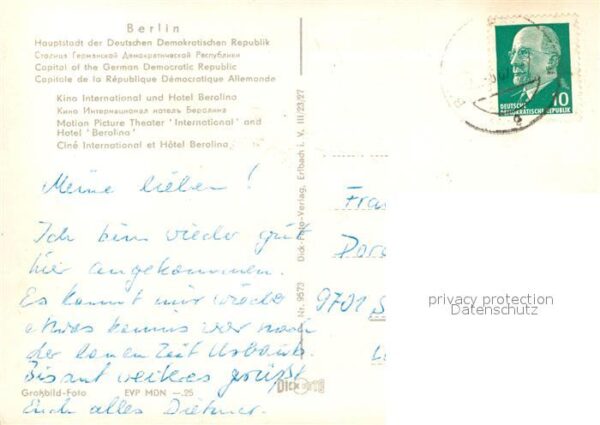 Berlin
Hauptstadt der Deutschen Demokratischen Republik
Столица Германской Демократической Республики
Capital of the German Democratic Republic
Capitale de la République Démocratique Allemande
Kino International und Hotel Berolina
Кино Интернационал и отель Беролина
Motion Picture Theater 'International' and
Hotel 'Berolina'
Ciné International et Hôtel Berolina
Meine lieben!
Ich bin wieder gut
hier angekommen.
Es kommt mir wieder
etwas vor nach
der Zeit Urlaub.
Bis auf weiteres grüßt
Euch alles Dietmar.
Großbild-Foto EVP MDN -.25
Nr. 9573 Dick-Foto-Verlag, Erlbach i. V. III/23/27
Dick
DEUTSCHE
DEMOKRATISCHE REPUBLIK
10
Frau
Doro
9701
privacy protection
Datenschutz